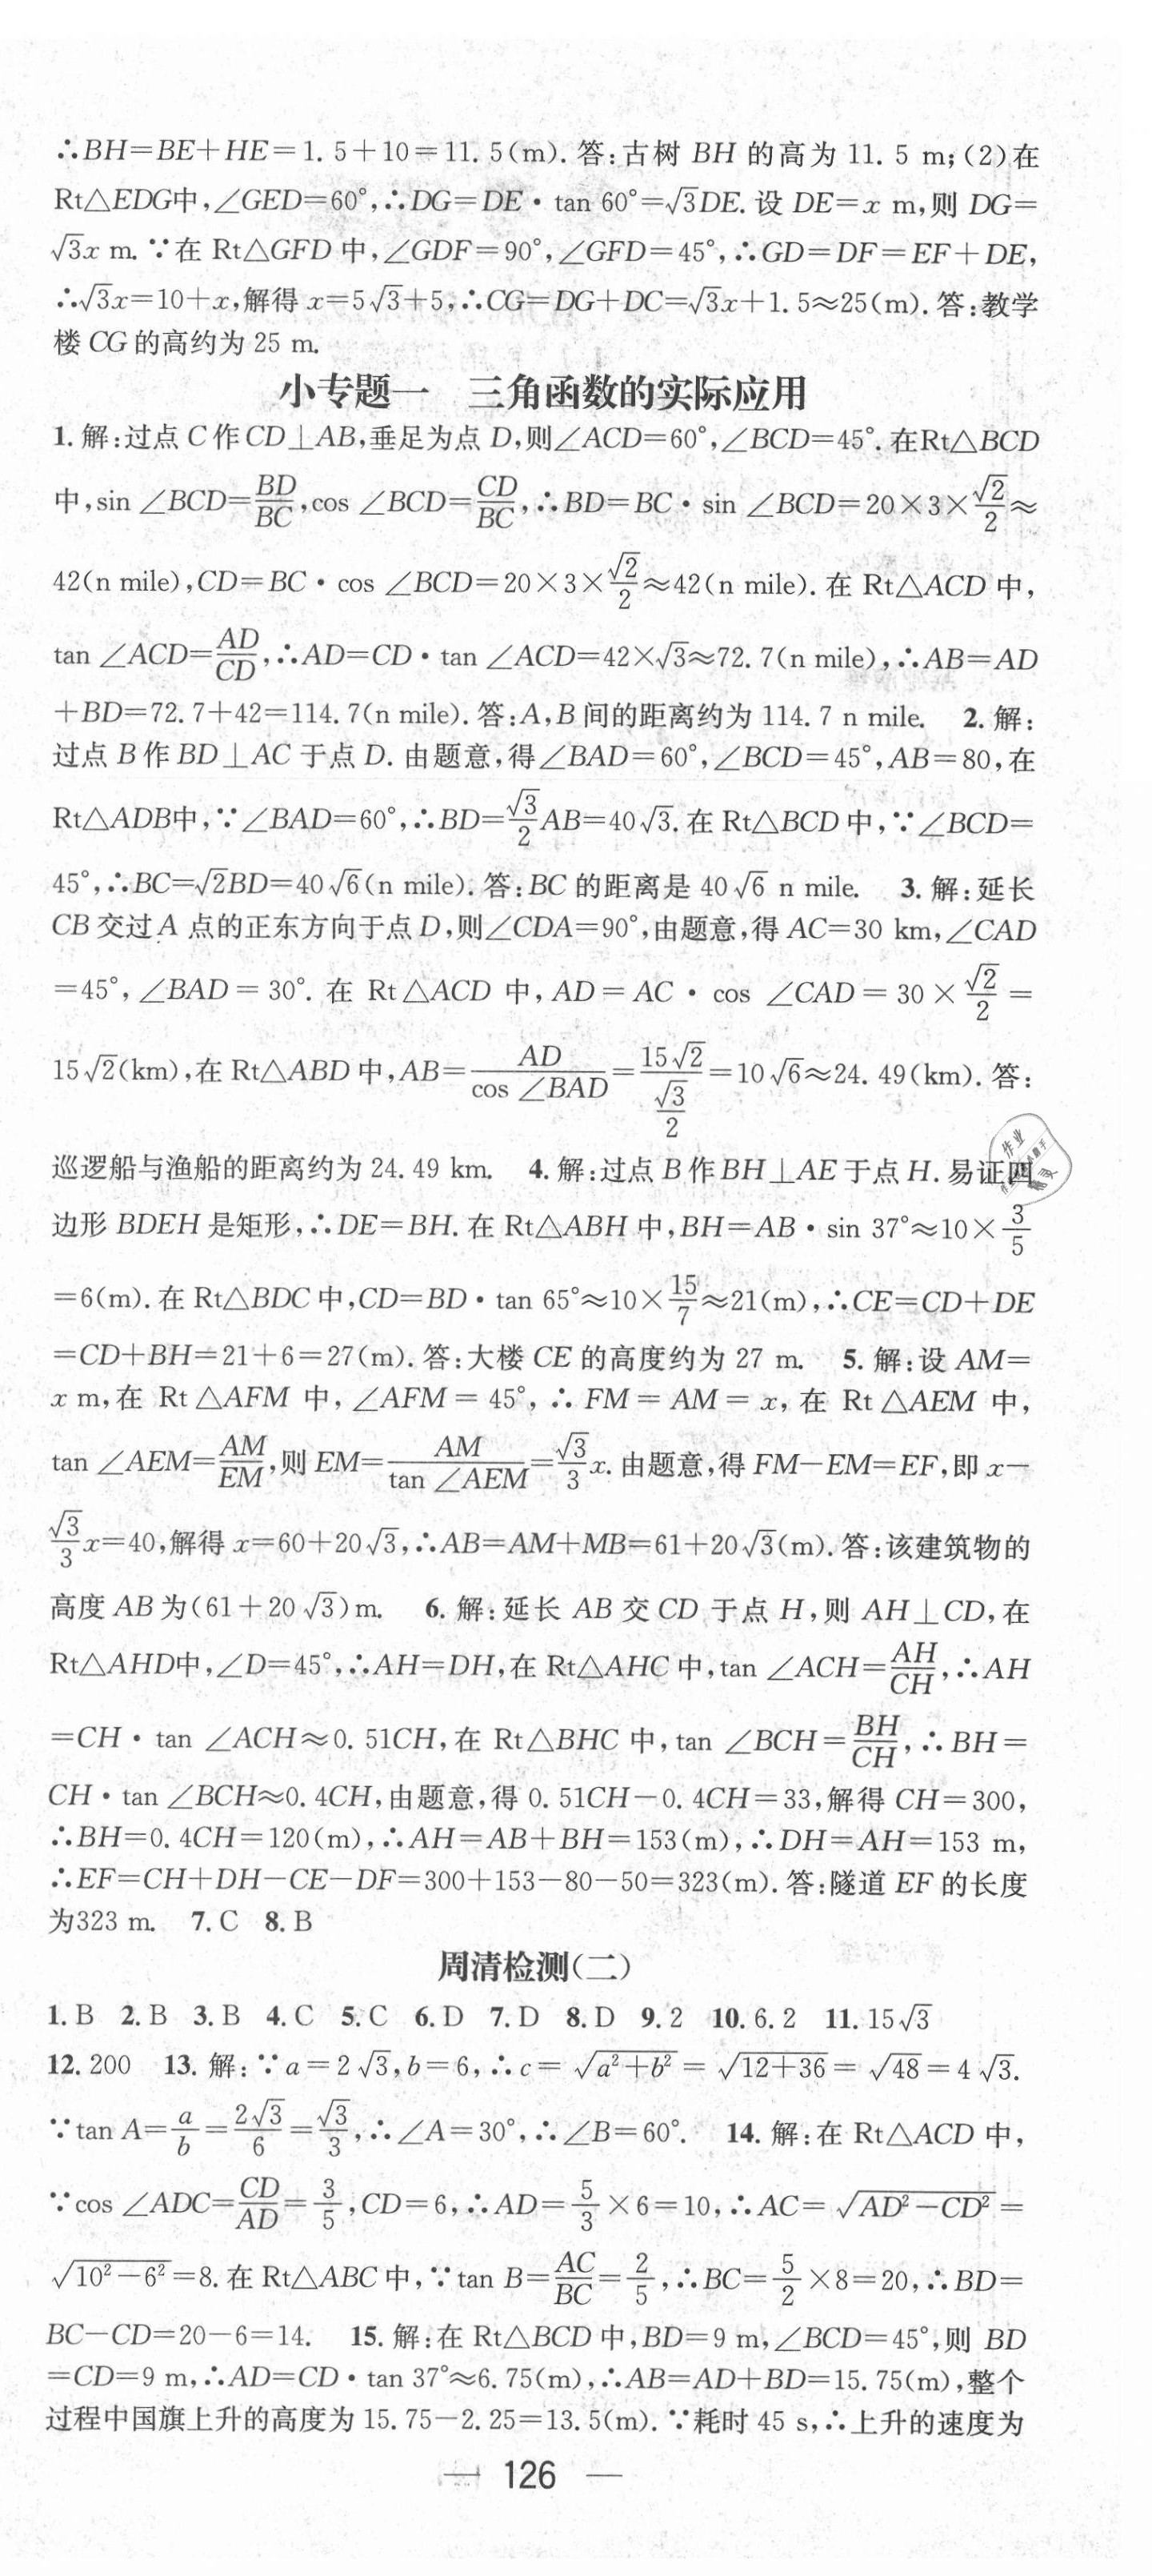 ∴BH=BE+HE=1.5+10=11.5(m).答:古树 BH 的高为 11.5 m;(2)在
Rt△EDG中,∠GED=60°,∴DG=DE·tan 60°=√3DE.设 DE=x m,则 DG=
√3x m.∵在 Rt△GFD 中,∠GDF=90°,∠GFD=45°,∴GD=DF=EF+DE,
∴√3x=10+x,解得 x=5√3+5,∴CG=DG+DC=√3x+1.5≈25(m).答:教学
楼 CG 的高约为 25 m.
小专题一 三角函数的实际应用
1.解:过点 C 作 CD⊥AB,垂足为点 D,则∠ACD=60°,∠BCD=45°.在Rt△BCD
中,sin ∠BCD=BD/BC,cos ∠BCD=CD/BC,∴BD=BC·sin ∠BCD=20×3×√2/2≈
42(n mile),CD=BC·cos ∠BCD=20×3×√2/2≈42(n mile).在 Rt△ACD 中,
tan ∠ACD=AD/CD,∴AD=CD·tan ∠ACD=42×√3≈72.7(n mile),∴AB=AD
+BD=72.7+42=114.7(n mile).答:A,B 间的距离约为 114.7 n mile. 2.解:
过点 B 作 BD⊥AC 于点 D.由题意,得∠BAD=60°,∠BCD=45°,AB=80,在
Rt△ADB中,∵∠BAD=60°,∴BD=√3/2AB=40√3.在 Rt△BCD 中,∵∠BCD=
45°,∴BC=√2BD=40√6(n mile).答:BC 的距离是 40√6 n mile. 3.解:延长
CB 交过 A 点的正东方向于点 D,则∠CDA=90°,由题意,得 AC=30 km,∠CAD
=45°,∠BAD=30°.在 Rt△ACD 中,AD=AC·cos ∠CAD=30×√2/2=
15√2(km),在 Rt△ABD 中,AB=AD/cos ∠BAD=15√2/(√3/2)=10√6≈24.49(km).答:
巡逻船与渔船的距离约为 24.49 km. 4.解:过点 B 作 BH⊥AE 于点 H.易证四
边形 BDEH 是矩形,∴DE=BH.在 Rt△ABH 中,BH=AB·sin 37°≈10×3/5
=6(m).在 Rt△BDC 中,CD=BD·tan 65°≈10×15/7≈21(m),∴CE=CD+DE
=CD+BH=21+6=27(m).答:大楼 CE 的高度约为 27 m. 5.解:设 AM=
x m,在 Rt△AFM 中,∠AFM=45°,∴FM=AM=x,在 Rt△AEM 中,
tan ∠AEM=AM/EM,则 EM=AM/tan ∠AEM=√3/3x.由题意,得 FM-EM=EF,即 x-
√3/3x=40,解得 x=60+20√3,∴AB=AM+MB=61+20√3(m).答:该建筑物的
高度 AB 为(61+20√3)m. 6.解:延长 AB 交 CD 于点 H,则 AH⊥CD,在
Rt△AHD中,∠D=45°,∴AH=DH,在 Rt△AHC 中,tan ∠ACH=AH/CH,∴AH
=CH·tan ∠ACH≈0.51CH,在 Rt△BHC 中,tan ∠BCH=BH/CH,∴BH=
CH·tan ∠BCH≈0.4CH,由题意,得 0.51CH-0.4CH=33,解得 CH=300,
∴BH=0.4CH=120(m),∴AH=AB+BH=153(m),∴DH=AH=153 m,
∴EF=CH+DH-CE-DF=300+153-80-50=323(m).答:隧道 EF 的长度
为323 m. 7.C 8.B
周清检测(二)
1.B 2.B 3.B 4.C 5.C 6.D 7.D 8.D 9.2 10.6.2 11.15√3
12.200 13.解:∵a=2√3,b=6,∴c=√(a²+b²)=√(12+36)=√48=4√3.
∵tan A=a/b=2√3/6=√3/3,∴∠A=30°,∴∠B=60°. 14.解:在 Rt△ACD 中,
∵cos ∠ADC=CD/AD=3/5,CD=6,∴AD=5/3×6=10,∴AC=√(AD²-CD²)=
√(10²-6²)=8.在 Rt△ABC 中,∵tan B=AC/BC=2/5,∴BC=5/2×8=20,∴BD=
BC-CD=20-6=14. 15.解:在 Rt△BCD 中,BD=9 m,∠BCD=45°,则 BD
=CD=9 m,∴AD=CD·tan 37°≈6.75(m),∴AB=AD+BD=15.75(m),整个
过程中国旗上升的高度为 15.75-2.25=13.5(m).∵耗时 45 s,∴上升的速度为
— 126 —
作业